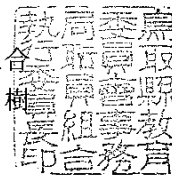 鳥取縣教育
委員會事務
局職員組合
執行委員長印
合
樹